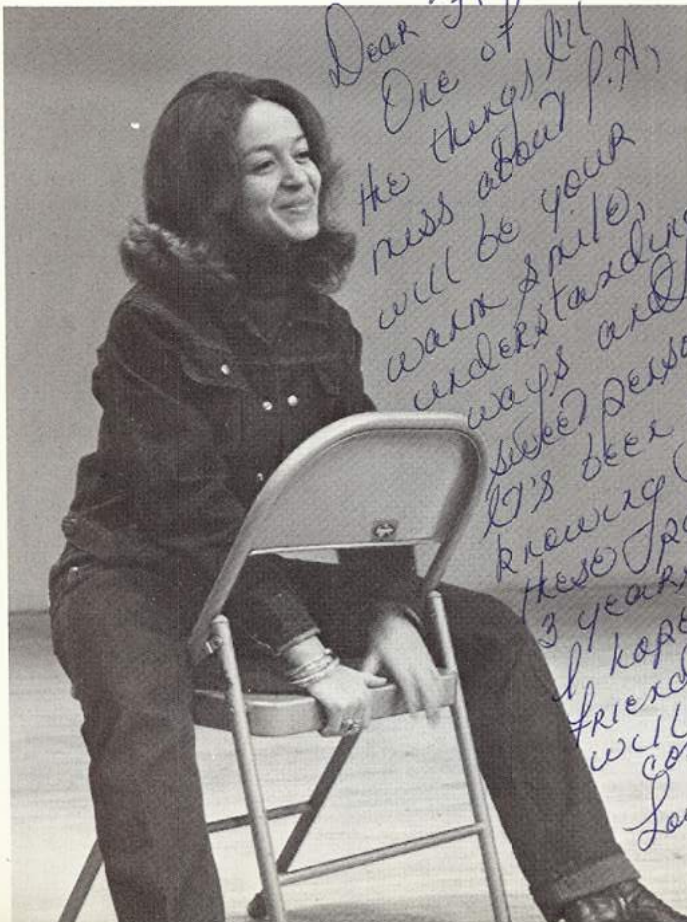 Dear
One of
the things I'll
miss about P.A.,
will be your
warm smile,
understanding
ways and
sweet perso
It's been
knowing
these pa
3 years,
I hope
friend
will
co
Lo